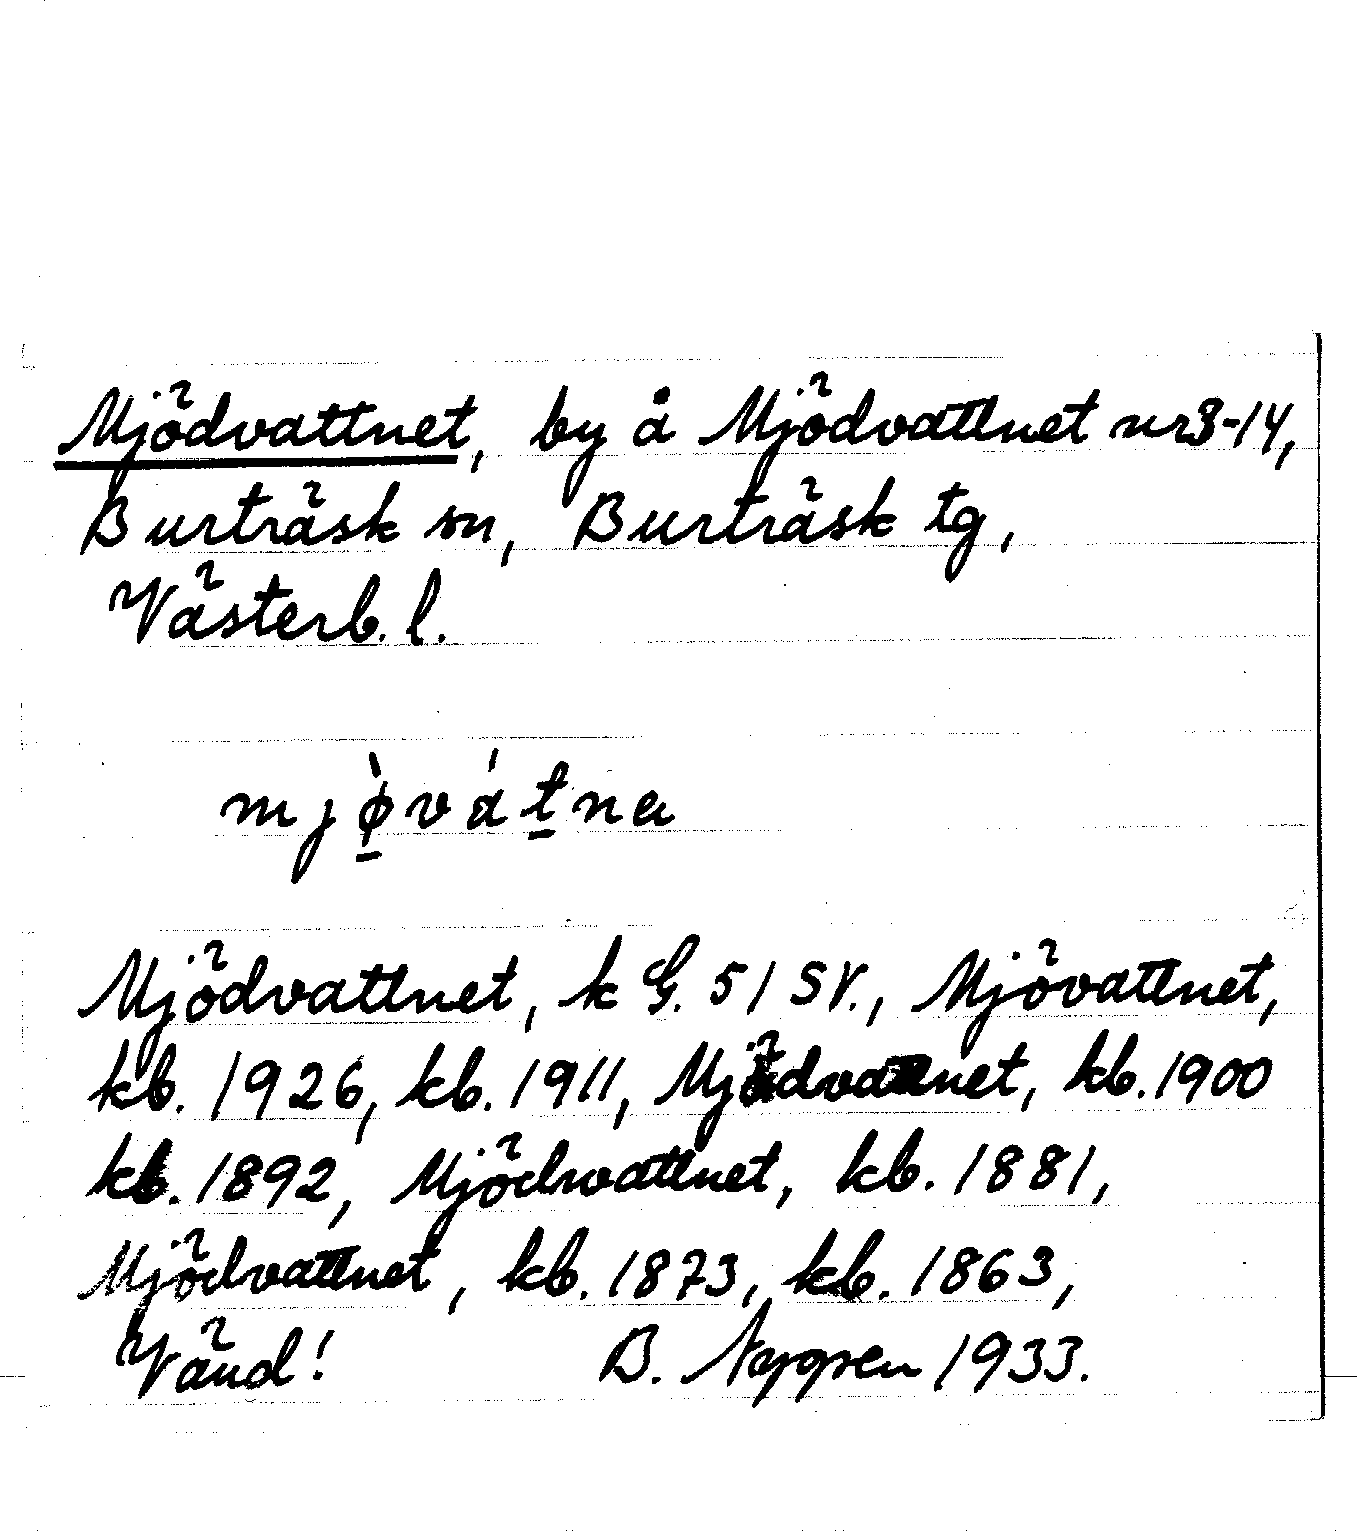 Mjödvattnet, by å Mjödvattnet nr 3-14,
Burträsk sn, Burträsk tg,
Västerb. l.
mjø̱̀váṯna
Mjödvattnet, k G. 51 SV., Mjövattnet,
kb. 1926, kb. 1911, Mjödvattnet, kb. 1900
kb. 1892, Mjödwattnet, kb. 1881,
Mjödvattnet, kb. 1873, kb. 1863,
Vänd! B. 1933.